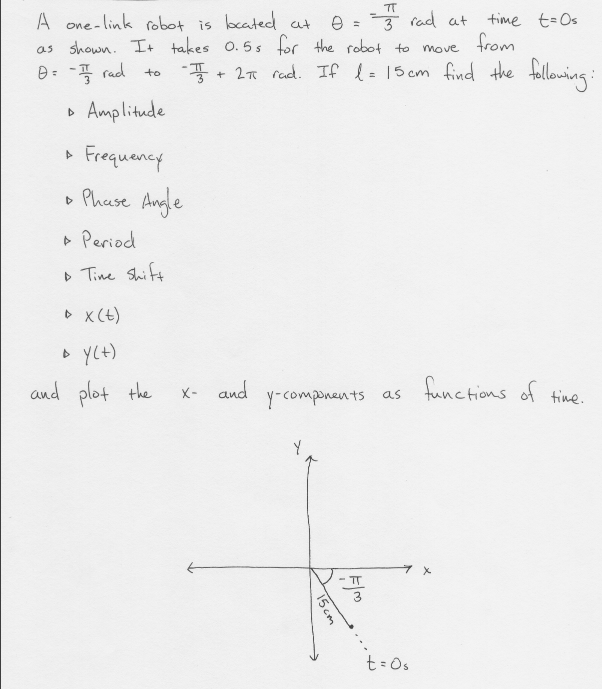 A one-link robot is located at θ = -π/3 rad at time t=0s
as shown. It takes 0.5s for the robot to move from
θ= -π/3 rad to -π/3 + 2π rad. If l = 15cm find the following:
▷ Amplitude
▷ Frequency
▷ Phase Angle
▷ Period
▷ Time Shift
▷ x(t)
▷ y(t)
and plot the x- and y-components as functions of time.
Y
x
-π/3
15cm
t=0s